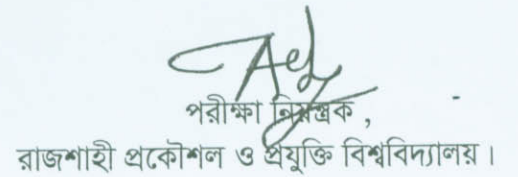 পরীক্ষা নিয়ন্ত্রক ,
রাজশাহী প্রকৌশল ও প্রযুক্তি বিশ্ববিদ্যালয়।